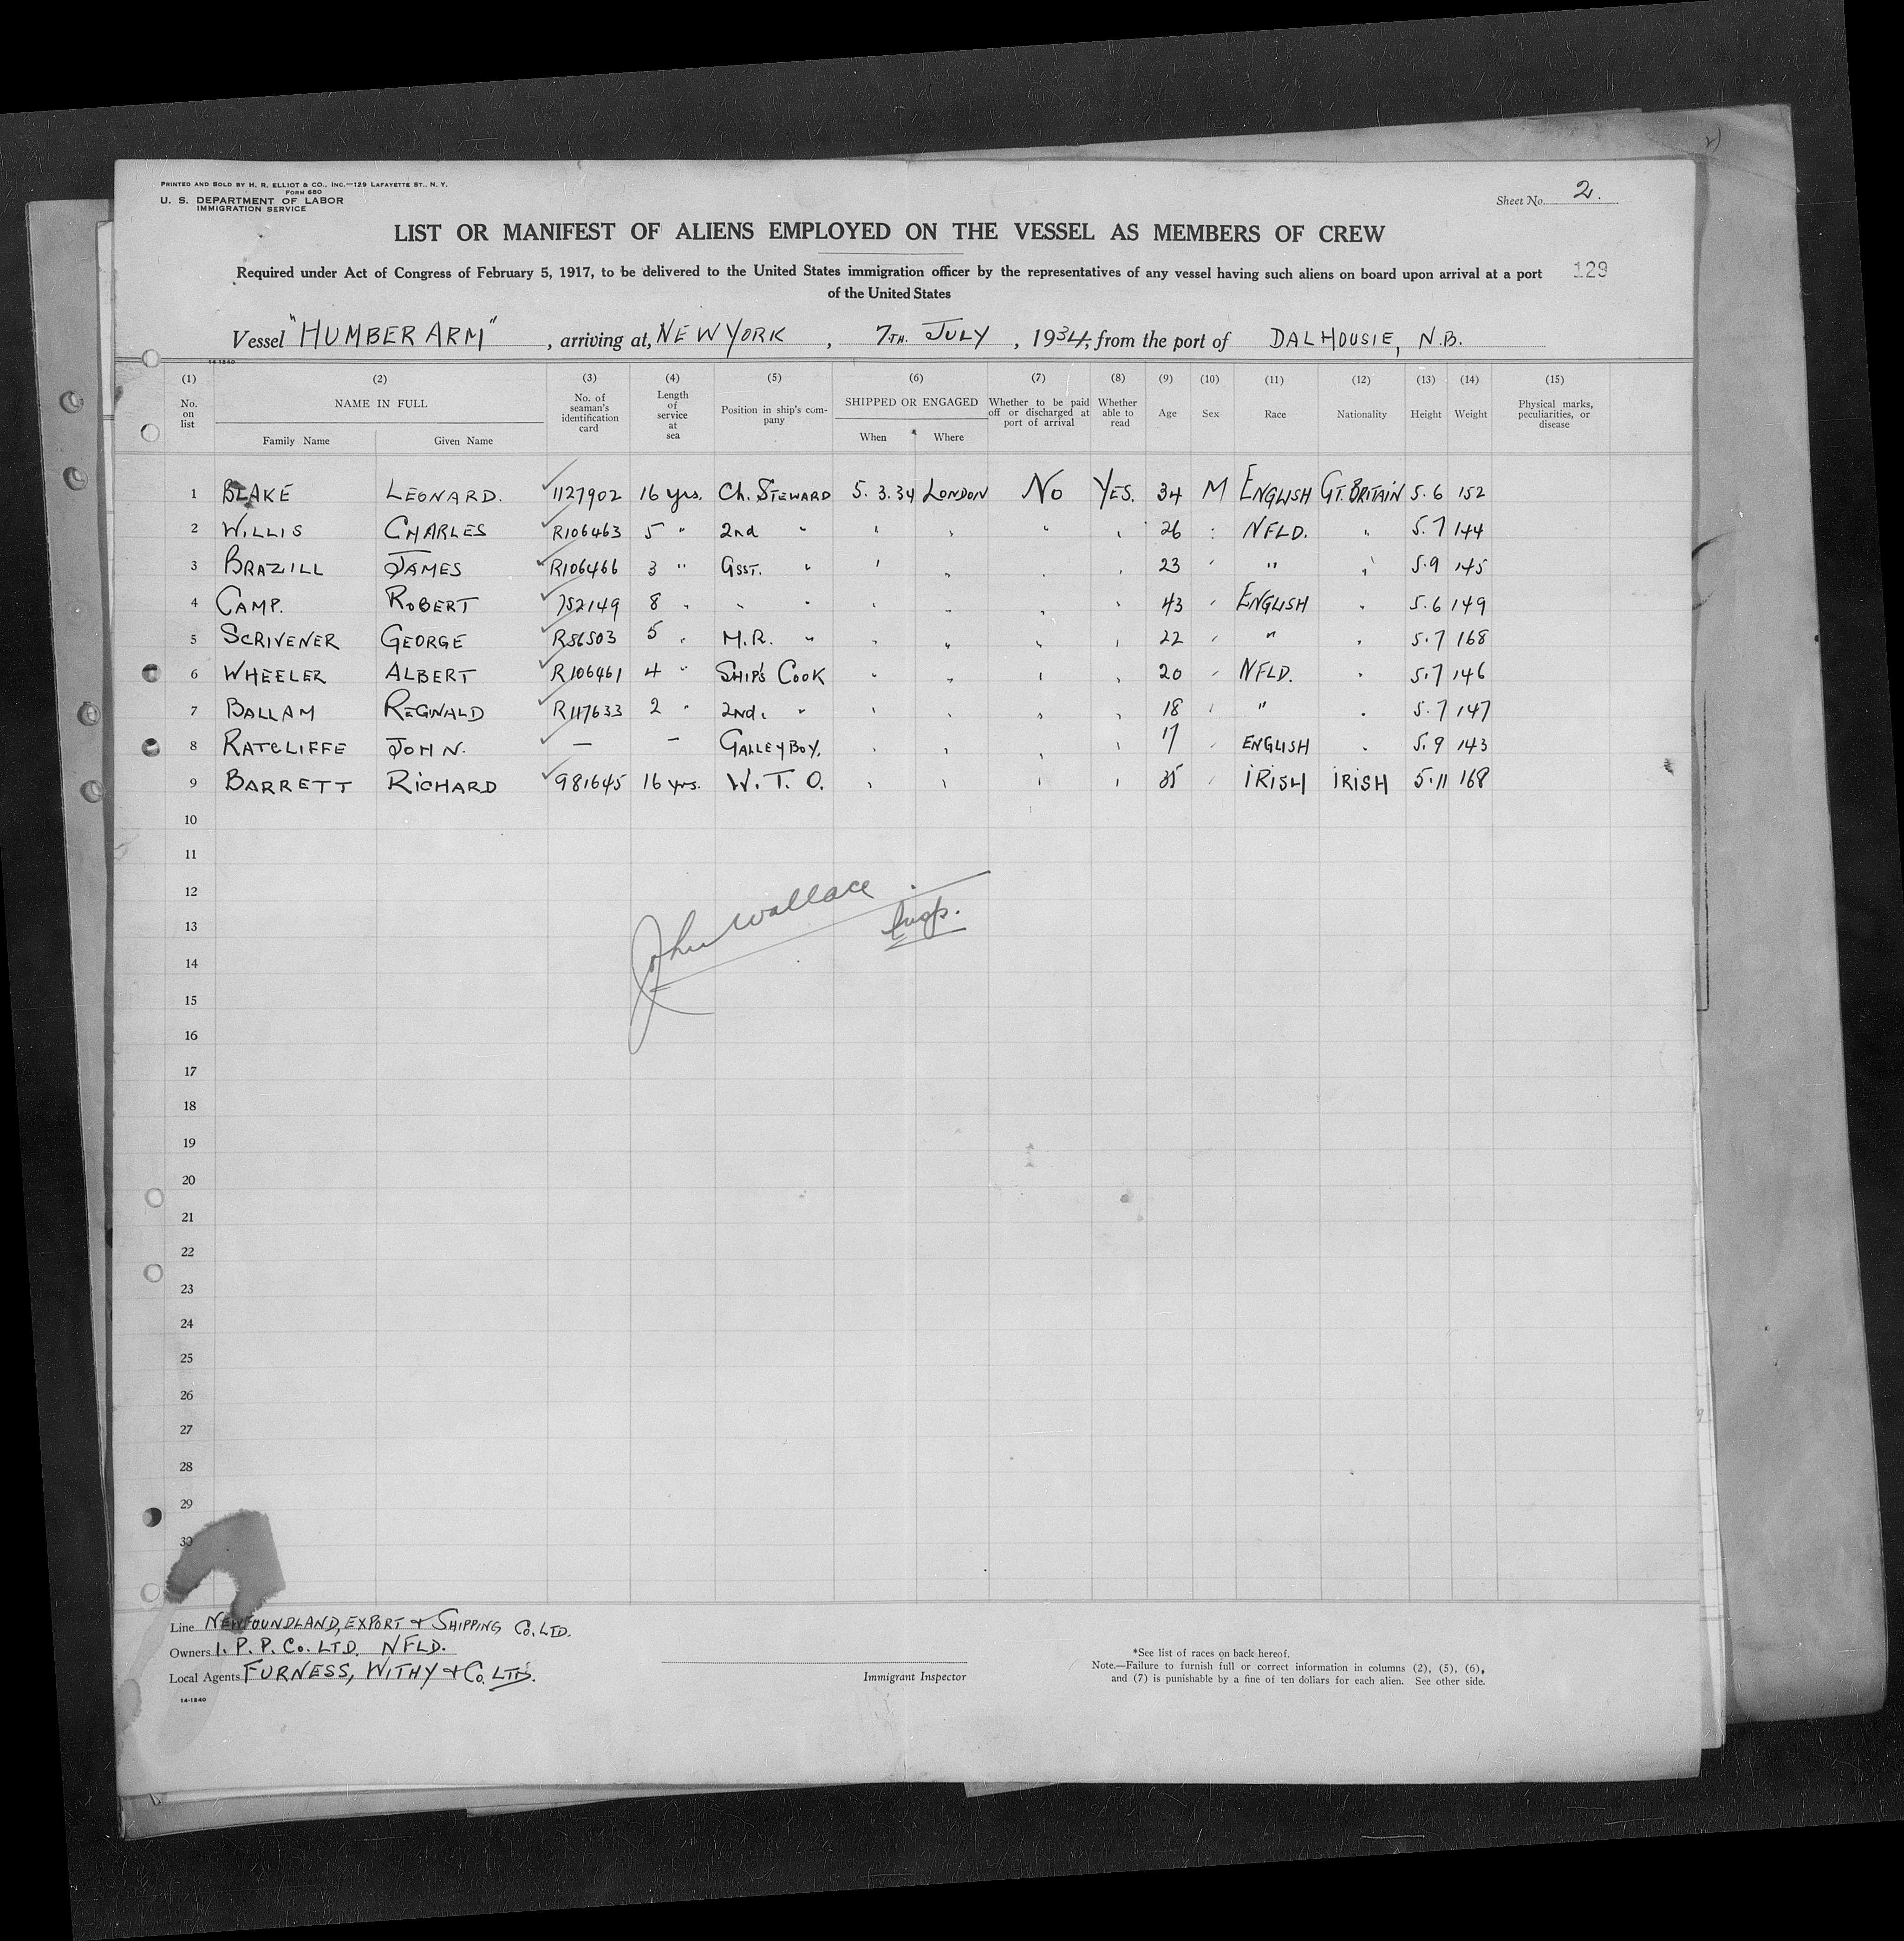 PRINTED AND SOLD BY H. R. ELLIOT & CO., INC.—129 LAFAYETTE ST., N. Y.
FORM 680
U. S. DEPARTMENT OF LABOR
IMMIGRATION SERVICE
Sheet No. 2.
LIST OR MANIFEST OF ALIENS EMPLOYED ON THE VESSEL AS MEMBERS OF CREW
Required under Act of Congress of February 5, 1917, to be delivered to the United States immigration officer by the representatives of any vessel having such aliens on board upon arrival at a port
of the United States
129
Vessel "HUMBER ARM", arriving at, NEW YORK, 7TH. JULY, 1934, from the port of DALHOUSIE, N.B.
14-1240
(1) (2) (3) (4) (5) (6) (7) (8) (9) (10) (11) (12) (13) (14) (15)
No. on list NAME IN FULL Family Name Given Name No. of seaman's identification card Length of service at sea Position in ship's company SHIPPED OR ENGAGED When Where Whether to be paid off or discharged at port of arrival Whether able to read Age Sex Race Nationality Height Weight Physical marks, peculiarities, or disease
1 BLAKE LEONARD. 1127902 16 yrs. Ch. STEWARD 5. 3. 34 LONDON NO YES. 34 M ENGLISH GT. BRITAIN 5.6 152
2 WILLIS CHARLES R106463 5 " 2nd " " " " " 26 " NFLD. " 5.7 144
3 BRAZILL JAMES R106466 3 " GSST. " " " " " 23 " " " 5.9 145
4 CAMP. ROBERT 752149 8 " " " " " " " 43 " ENGLISH " 5.6 149
5 SCRIVENER GEORGE R56503 5 " M.R. " " " " " 22 " " " 5.7 168
6 WHEELER ALBERT R106461 4 " SHIP'S COOK " " " " 20 " NFLD. " 5.7 146
7 BALLAM REGINALD R117633 2 " 2nd. " " " " " 18 " " " 5.7 147
8 RATCLIFFE JOHN. — — GALLEY BOY. " " " " 17 " ENGLISH " 5.9 143
9 BARRETT RICHARD 981645 16 yrs. W. T. O. " " " " 35 " IRISH IRISH 5.11 168
10
11
12
13
14
15
16
17
18
19
20
21
22
23
24
25
26
27
28
29
30
John Wallace
Insp.
Line NEWFOUNDLAND, EXPORT & SHIPPING CO. LTD.
Owners I. P. P. CO. LTD. NFLD.
Local Agents FURNESS, WITHY & CO. LTD.
14-1240
Immigrant Inspector
*See list of races on back hereof.
Note.—Failure to furnish full or correct information in columns (2), (5), (6),
and (7) is punishable by a fine of ten dollars for each alien. See other side.